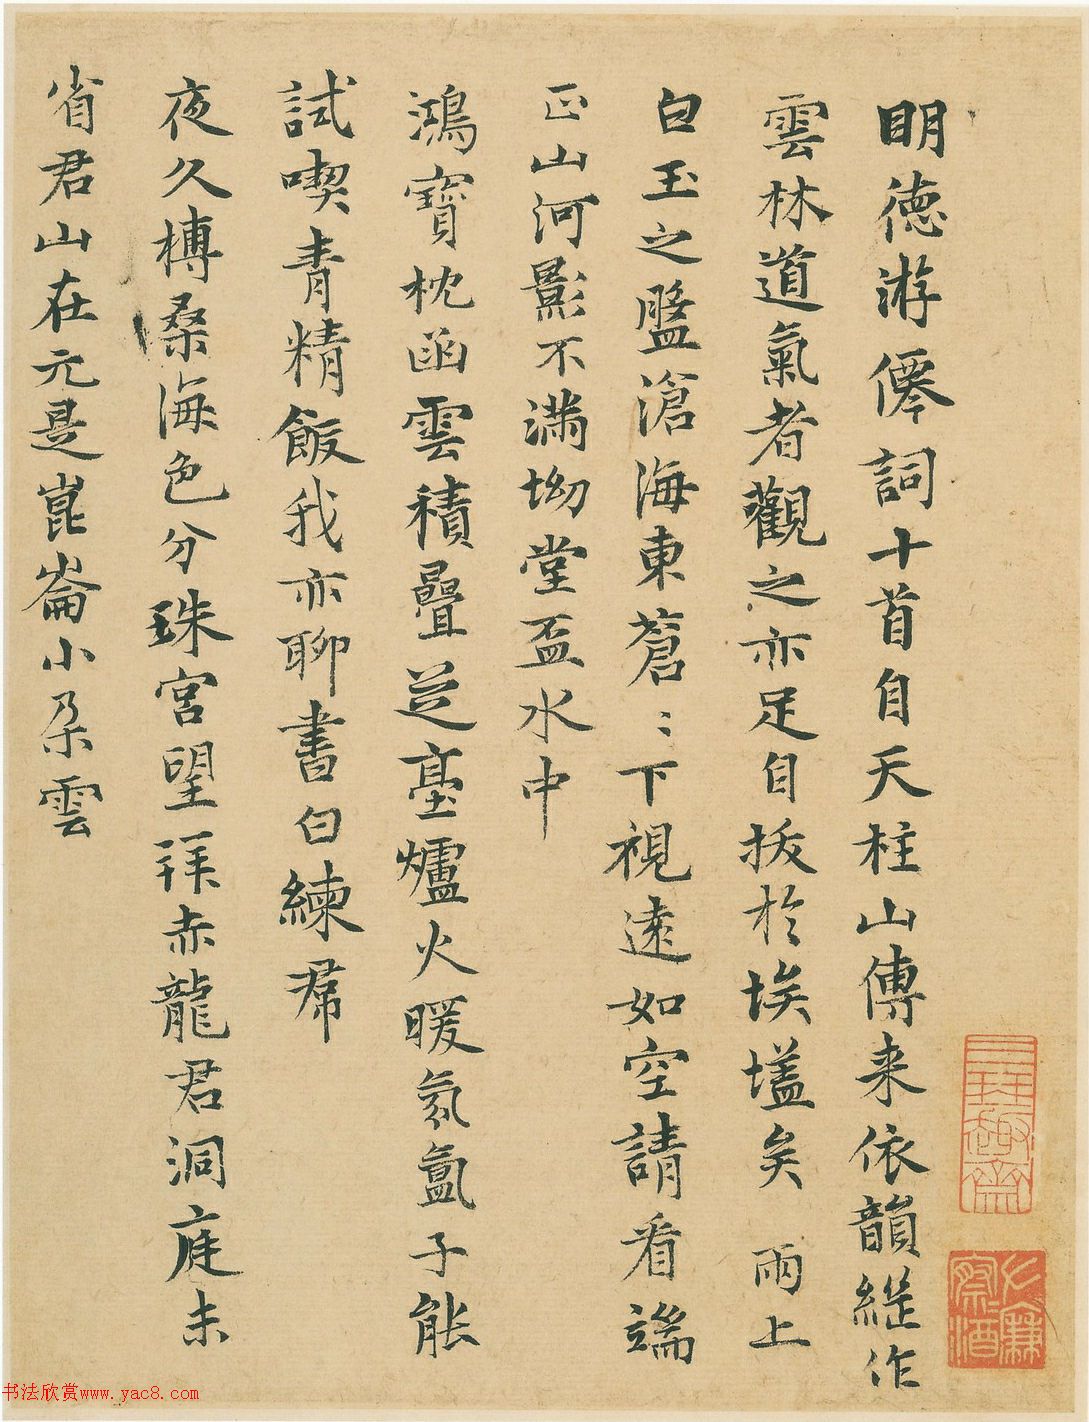 明德游僊詞十首自天柱山傳来依韻継作
雲林道氣者觀之亦足自拔於埃壒矣 兩上
白玉之盤滄海東蒼〻下視遠如空請看端
正山河影不滿坳堂盃水中
鴻寶枕函雲積疊芝臺爐火暖氛氳子能
試喫青精飯我亦聊書白練帬
夜久榑桑海色分珠宮望拜赤龍君洞庭未
省君山在元是崑崙小朶雲
三希堂
書法欣赏www.yac8.com